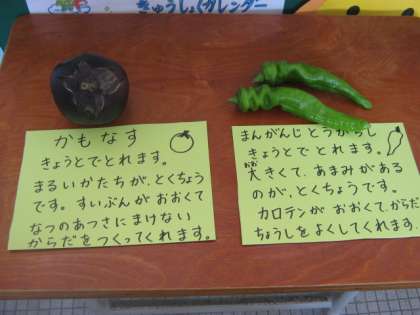 きゅうしょくカレンダー
かもなす
きょうとでとれます。
まるいかたちが、とくちょう
です。すいぶんがおおくて
なつのあつさにまけない
からだをつくってくれます。
まんがんじとうがらし
きょうとでとれます。
大きくて、あまみがある
おお
のが、とくちょうです。
カロテンがおおくて、からだ
ちょうしをよくしてくれます.